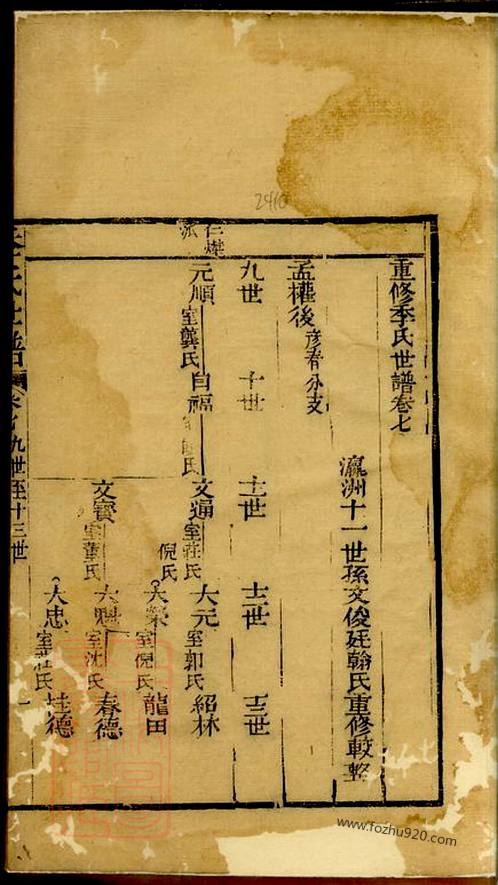 2410
仁
重修季氏世譜卷七
瀛洲十一世孫文俊廷翰氏重修較整
孟權後 彥春分支
九世 十世 十一世 十二世 十三世
元順 室龔氏 自福 氏 文逥 室莊氏 倪氏 大元 室郭氏 紹林
大榮 室倪氏 龍田
文寶 室董氏 大 室沈氏 春德
大忠 室莊氏 桂德
季氏世譜 卷七 九世至十三世 一
www.fozhu920.com